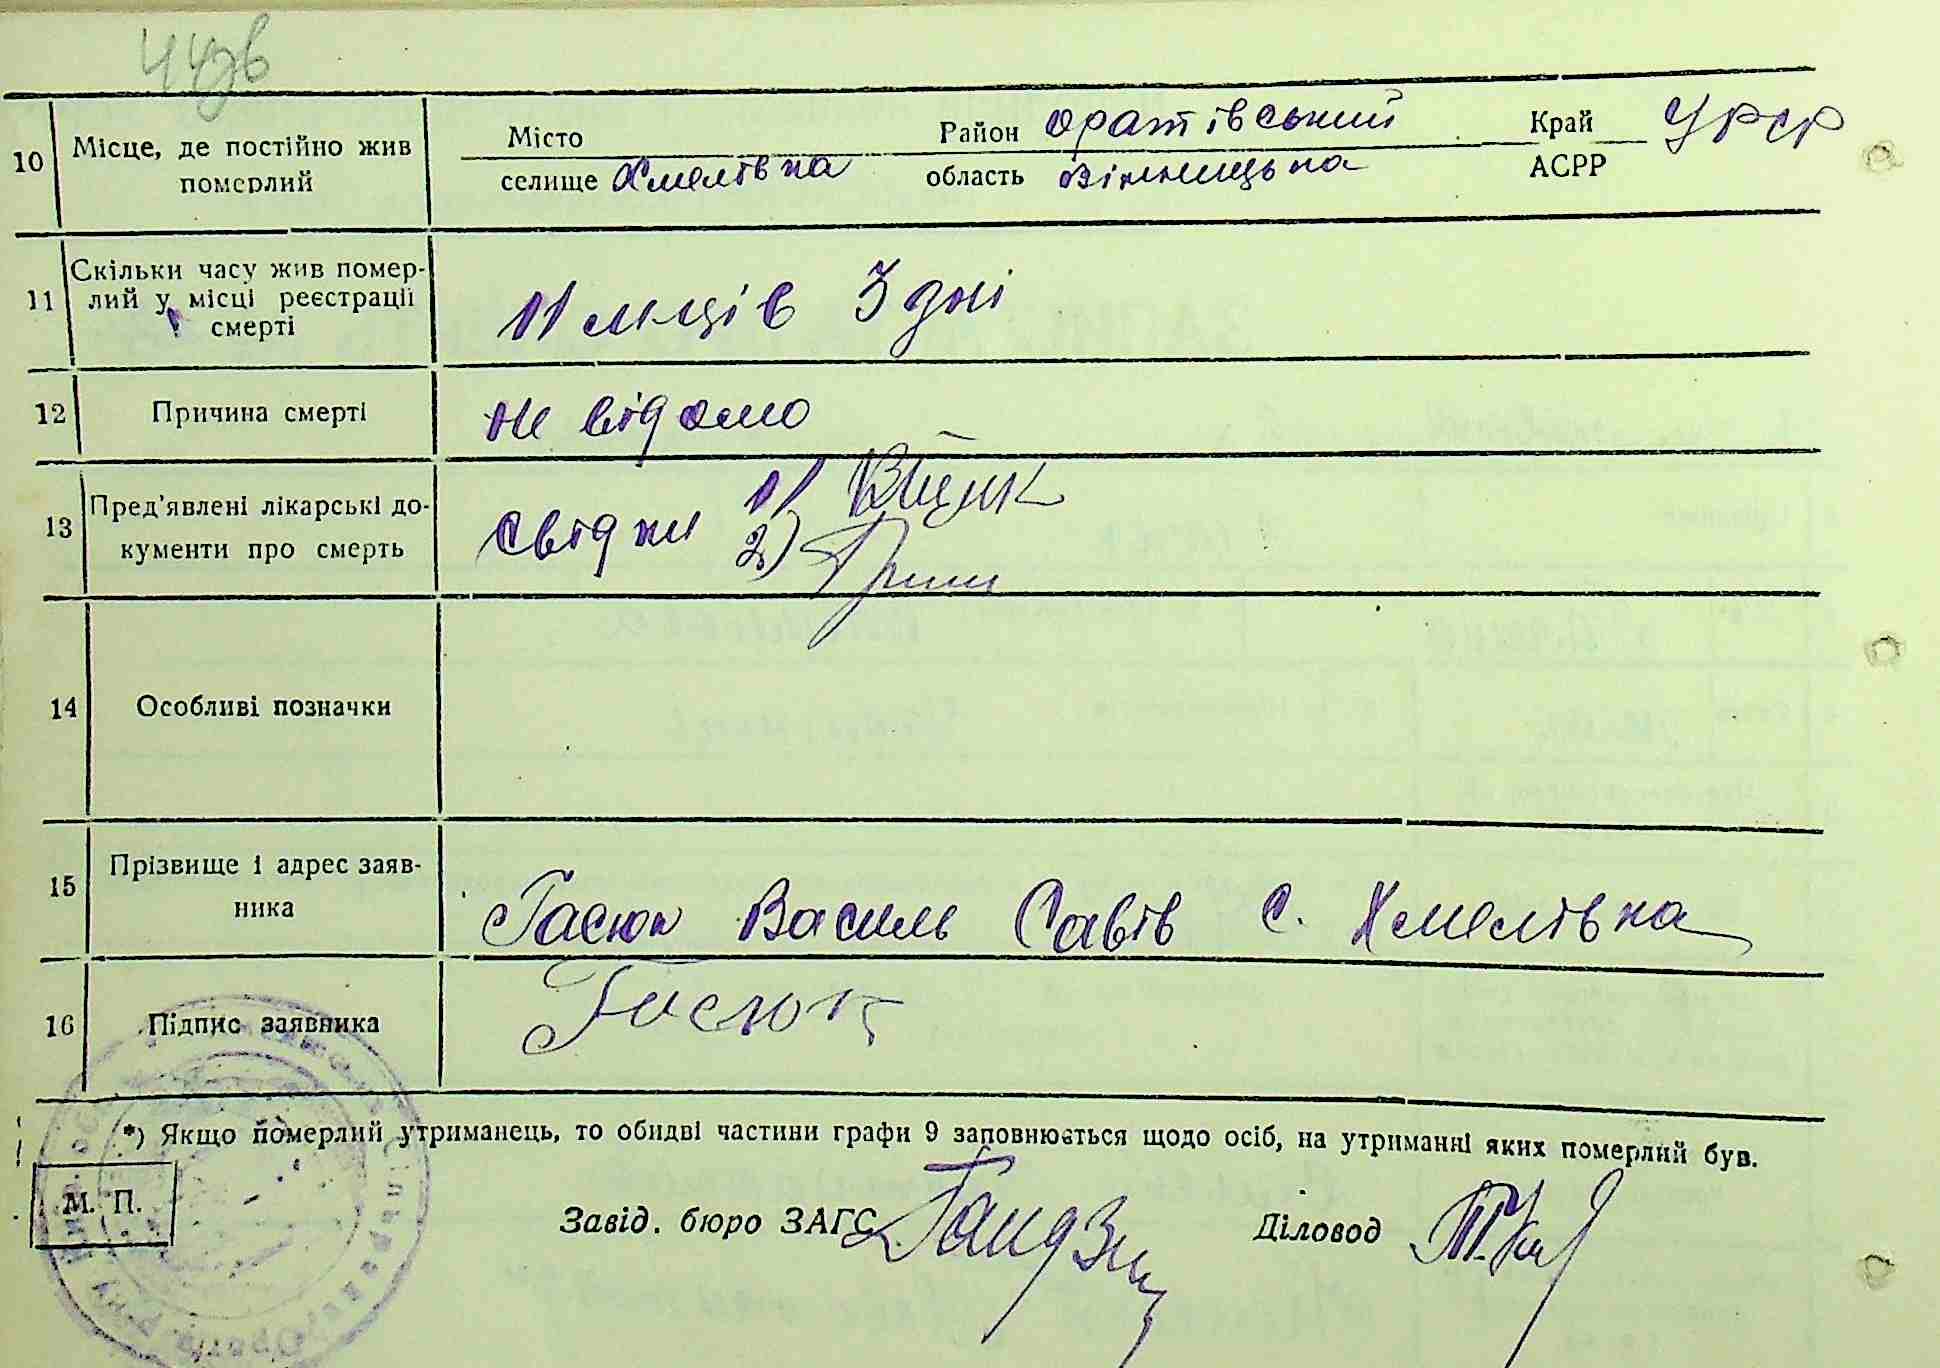 44зв
10 Місце, де постійно жив померлий
Місто Район Оратівський Край УРСР
селище Хмелівка область Вінницька АСРР
11 Скільки часу жив помер-
лий у місці реєстрації
смерті
11 м-ців 3 дні
12 Причина смерті Не відомо
13 Пред'явлені лікарські до-
кументи про смерть
Свідки 1)
2)
14 Особливі позначки
15 Прізвище і адрес заяв-
ника
Гасюк Василь Савів с. Хмелівка
16 Підпис заявника Гасюк
*) Якщо померлий утриманець, то обидві частини графи 9 заповнюється щодо осіб, на утриманні яких померлий був.
М. П.
Завід. бюро ЗАГС Діловод